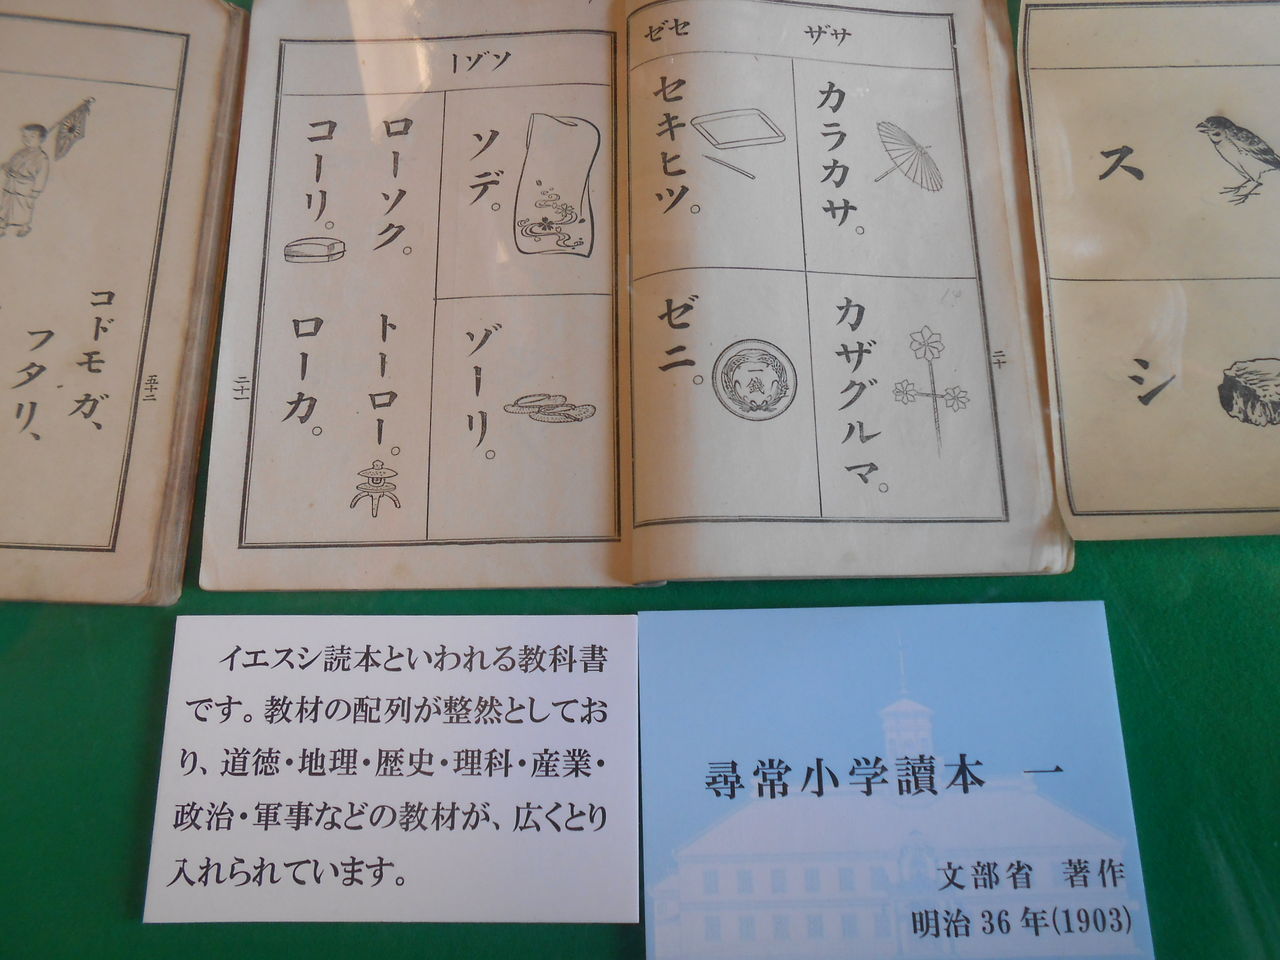 ス
シ
ザサ
カラカサ。
カザグルマ。
二十
ゼセ
セキヒツ。
ゼニ。
一銭
ーゾソ
ソデ。
ゾーリ。
ローソク。
トーロー。
コーリ。
ローカ。
二十一
五十二
コドモガ、
フタリ、
イエスシ読本といわれる教科書
です。教材の配列が整然としてお
り、道徳・地理・歴史・理科・産業・
政治・軍事などの教材が、広くとり
入れられています。
尋常小学讀本 一
文部省 著作
明治36年(1903)